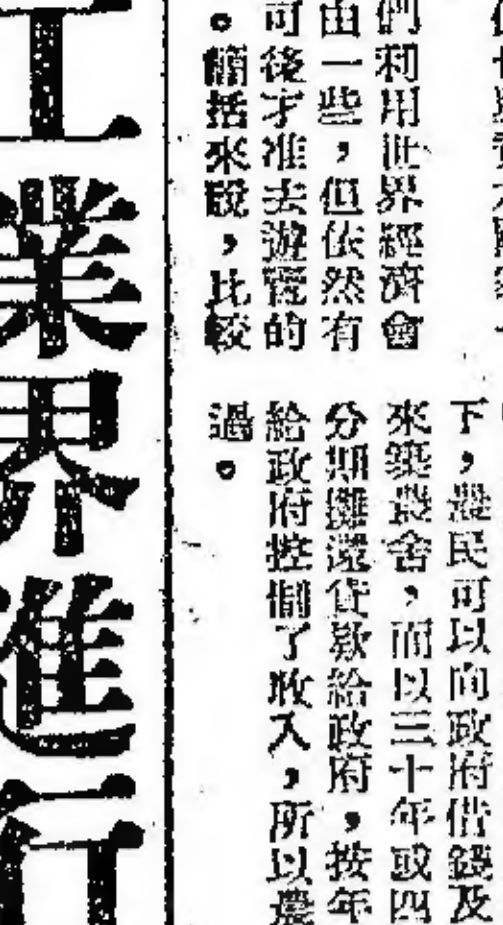 們利用世界經濟會
由一些，但依然有
可後才准去遊覽的
。簡括來說，比較
下，農民可以向政府借錢及
來築農舍，而以三十年或四
分期攤還貸款給政府，按年
給政府控制了收入，所以農
過。
工業界進行